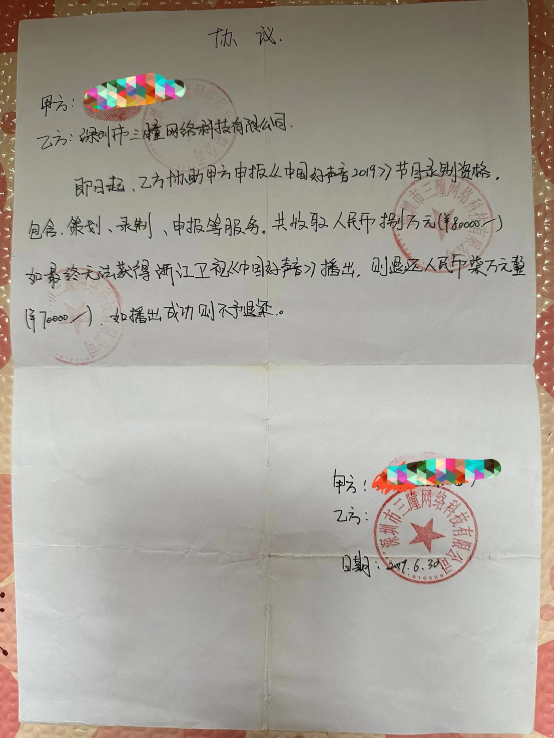 协 议.
甲方:
乙方: 深圳市三瞳网络科技有限公司.
即日起、乙方协助甲方申报《中国好声音2019》节目录制资格,
包含、策划、录制、申报等服务。共收取人民币捌万元(¥80000—)
如最终无法获得浙江卫视《中国好声音》播出,则退还人民币柒万元整
(¥70000—)、如播出成功则不予退还。
甲方:
乙方:
深圳市三瞳网络科技有限公司
日期: 2019.6.30